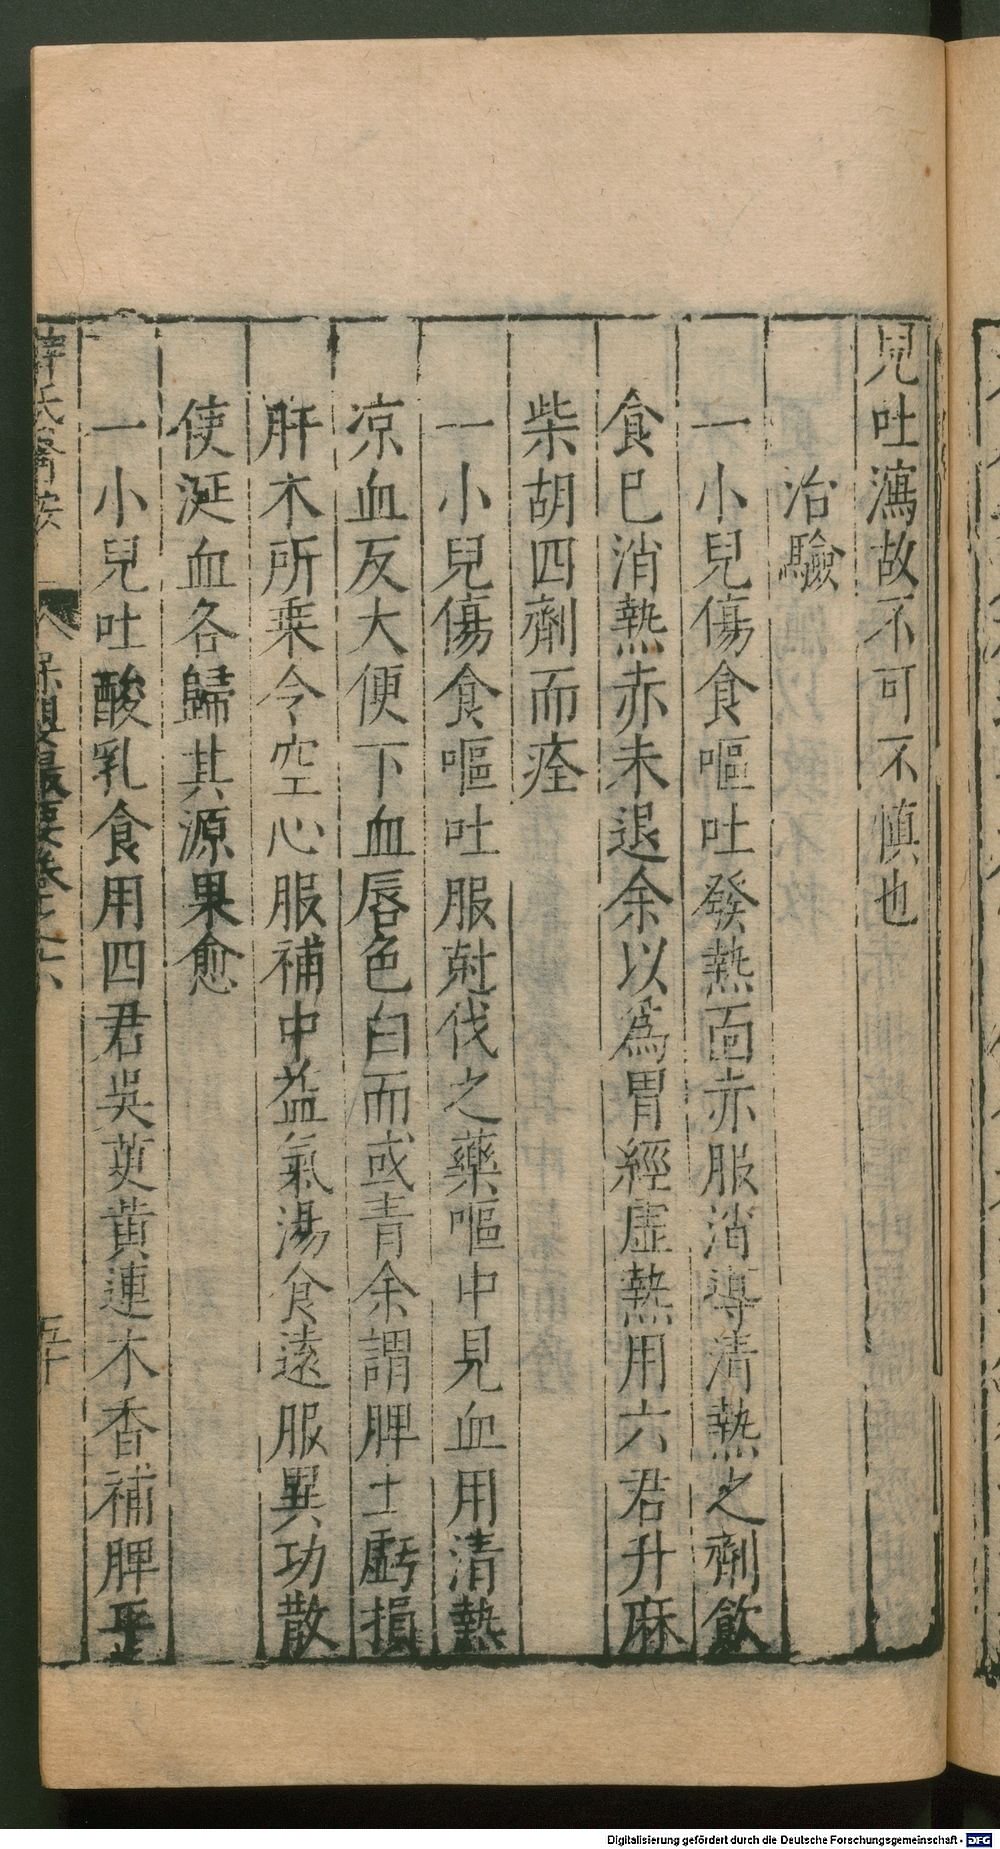 兒吐瀉故不可不慎也
治驗
一小兒傷食嘔吐發熱面赤服消導清熱之劑飲
食已消熱赤未退余以為胃經虛熱用六君升麻
柴胡四劑而痊
一小兒傷食嘔吐服尅伐之藥嘔中見血用清熱
凉血反大便下血唇色白而或青余謂脾土虧損
肝木所乗令空心服補中益氣湯食遠服異功散
使涎血各歸其源果愈
一小兒吐酸乳食用四君吳萸黃連木香補脾平
薛氏醫按 保嬰撮要卷之六 五十
Digitalisierung gefördert durch die Deutsche Forschungsgemeinschaft - DFG